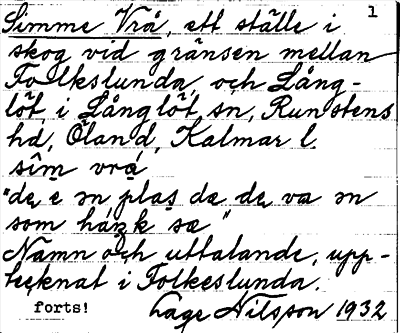 1
Simme Vrå, ett ställe i
skog vid gränsen mellan
Folkslunda, och Lång-
löt, i Långlöt sn, Runstens
hd, Öland, Kalmar l.
sîm vrá
"dę ę ɘn plas dɑ dę vɑ ɘn
som háŋk sæ"
Namn och uttalande, upp-
tecknat i Folkeslunda.
forts! Lage Nilsson 1932